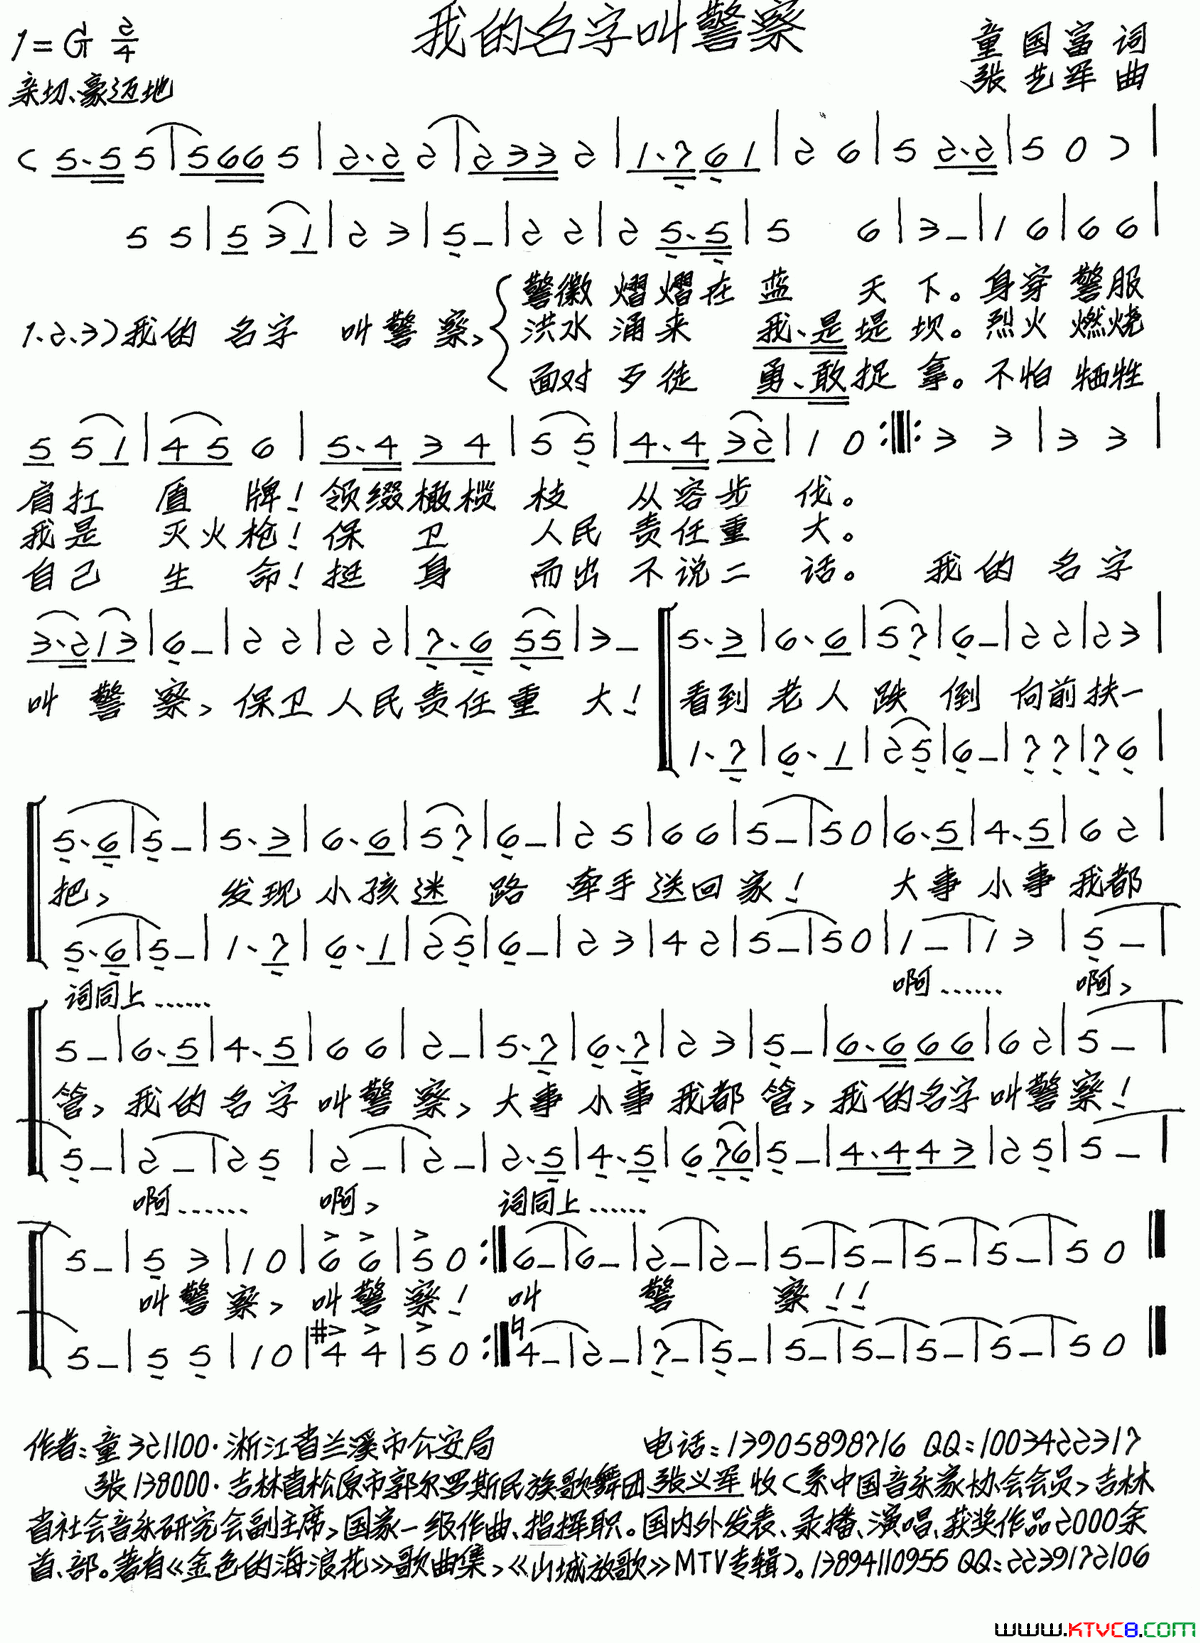 我的名字叫警察
1=G 2/4
童国富 词
亲切、豪迈地
张艺军 曲
( 5·5 5 | 5 6 6 5 | 2·2 2 | 2 3 3 2 | 1·7 6 1 | 2 6 | 5 2·2 | 5 0 ) |
5 5 | 5 3 1 | 2 3 | 5 – | 2 2 | 2 5·5 | 5 6 | 3 – | 1 6 | 6 6 |
警徽 熠熠在 蓝 天 下。身穿 警服
1.2.3)我的 名字 叫警 察, 洪水 涌来 我、是堤 坝。烈火 燃烧
面对 歹徒 勇、敢捉 拿。不怕 牺牲
5 5 1 | 4 5 6 | 5·4 3 4 | 5 5 | 4·4 3 2 | 1 0 :‖: 3 3 | 3 3 |
肩扛 盾 牌!领缀橄榄 枝 从容步 伐。
我是 灭火枪!保 卫 人民 责任重 大。
自己 生 命!挺 身 而出 不说二 话。 我的 名字
3·2 1 3 | 6 – | 2 2 | 2 2 | 7·6 5 5 | 3 – 5·3 | 6·6 | 5 7 | 6 – | 2 2 | 2 3 |
叫 警 察,保卫人民责任重 大! 看到 老人 跌 倒 向前扶一
1·7 | 6·1 | 2 5 | 6 – | 7 7 | 7 6 |
5·6 | 5 – | 5·3 | 6·6 | 5 7 | 6 – | 2 5 | 6 6 | 5 – | 5 0 | 6·5 | 4·5 | 6 2 |
把, 发现 小孩 迷 路 牵手 送回 家! 大事 小事 我都
5·6 | 5 – | 1·7 | 6·1 | 2 5 | 6 – | 2 3 | 4 2 | 5 – | 5 0 | 1 – | 1 3 | 5 – |
词同上…… 啊…… 啊,
5 – | 6·5 | 4·5 | 6 6 | 2 – | 5·7 | 6·7 | 2 3 | 5 – | 6·6 6 6 | 6 2 | 5 – |
管,我的 名字 叫警 察,大事 小事 我都 管,我的名字叫警 察!
5 – | 2 – | 2 5 | 2 – | 2 – | 2·5 | 4·5 | 6 7 6 | 5 – | 4·4 4 3 | 2 5 | 5 – |
啊…… 啊, 词同上……
5 – | 5 3 | 1 0 | 6 6 | 5 0 :‖ 6 – | 6 – | 2 – | 2 – | 5 – | 5 – | 5 – | 5 – | 5 0 ‖
叫警 察,叫警 察! 叫 警 察!!
5 – | 5 5 | 1 0 | #4 4 | 5 0 :‖ ♮4 – | 2 – | 7 – | 5 – | 5 – | 5 – | 5 – | 5 – | 5 0 ‖
作者:童321100·浙江省兰溪市公安局 电话:13905898716 QQ:1003422317
张138000·吉林省松原市郭尔罗斯民族歌舞团张义军收(系中国音乐家协会会员,吉林
省社会音乐研究会副主席,国家一级作曲、指挥职。国内外发表、录播、演唱、获奖作品2000余
首、部。著有《金色的海浪花》歌曲集,《山城放歌》MTV专辑)。13894110955 QQ:2239172106
www.KTVC8.com